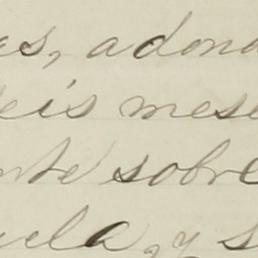 as, adond
eis mese
nte sobre
uela, y s